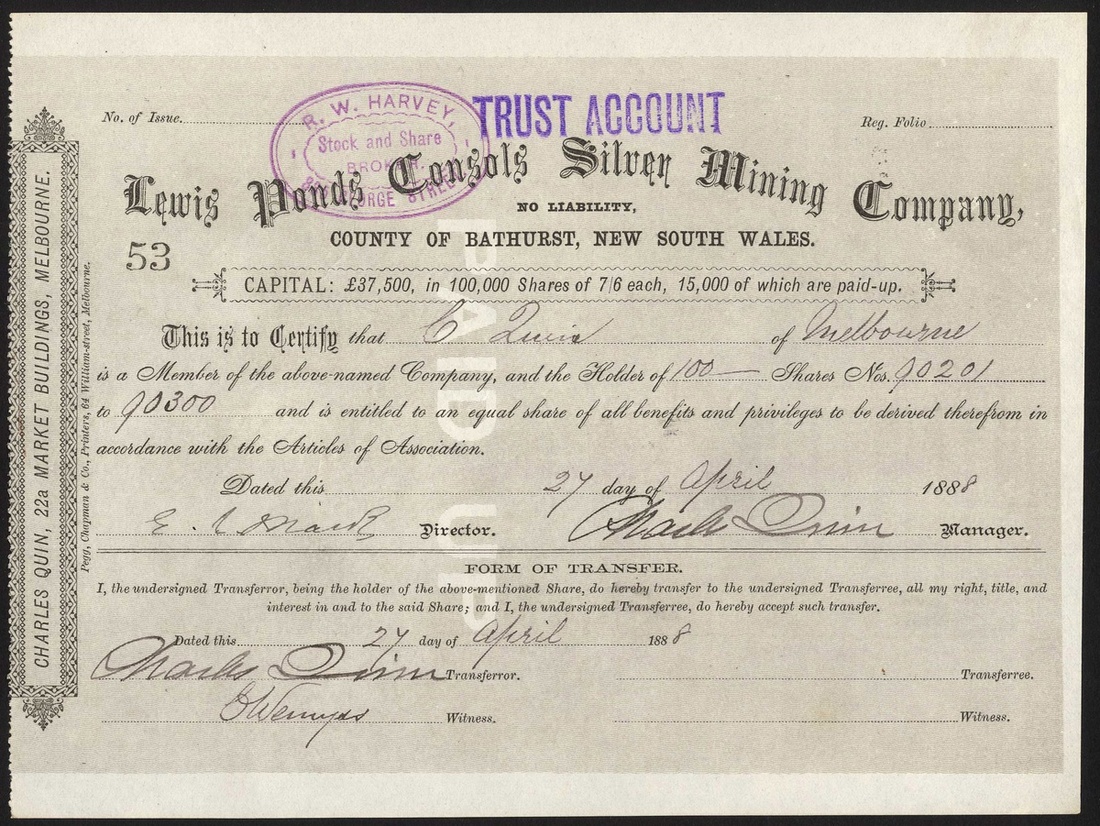 No. of Issue
R. W. HARVEY,
Stock and Share
BROKER.
GEORGE STREET
TRUST ACCOUNT
Reg. Folio
Lewis Ponds Consols Silver Mining Company,
NO LIABILITY,
COUNTY OF BATHURST, NEW SOUTH WALES.
53
CAPITAL: £37,500, in 100,000 Shares of 7/6 each, 15,000 of which are paid-up.
This is to Certify that C Quin of Melbourne
is a Member of the above-named Company, and the Holder of 100 Shares Nos. 90201
to 90300 and is entitled to an equal share of all benefits and privileges to be derived therefrom in
accordance with the Articles of Association.
Dated this 27 day of April 1888
Director. Charles Quin Manager.
FORM OF TRANSFER.
I, the undersigned Transferror, being the holder of the above-mentioned Share, do hereby transfer to the undersigned Transferree, all my right, title, and
interest in and to the said Share; and I, the undersigned Transferree, do hereby accept such transfer.
Dated this 27 day of April 1888
Charles Quin Transferror. Transferree.
Wemyss Witness. Witness.
CHARLES QUIN, 22a MARKET BUILDINGS, MELBOURNE.
Pegg, Chapman & Co., Printers, 64 William-street, Melbourne.
PAID UP